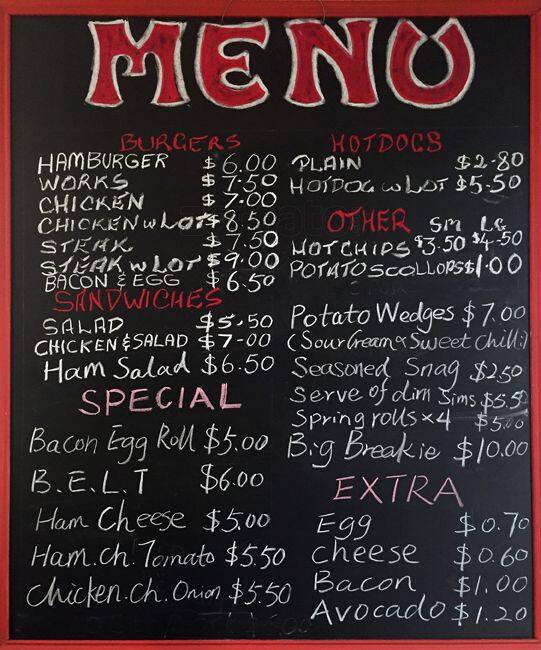 MENU
BURGERS
HAMBURGER $6.00
WORKS $7.50
CHICKEN $7.00
CHICKEN w LOT $8.50
STEAK $7.50
STEAK w LOT $9.00
BACON & EGG $6.50
SANDWICHES
SALAD $5.50
CHICKEN & SALAD $7-00
Ham Salad $6.50
SPECIAL
Bacon Egg Roll $5.00
B.E.L.T $6.00
Ham Cheese $5.00
Ham.ch.Tomato $5.50
Chicken.ch.Onion $5.50
HOTDOGS
PLAIN $2-80
HOTDOG w LOT $5-50
OTHER Sm LG
HOTCHIPS $3.50 $4-50
POTATO SCOLLOPS $1.00
Potato Wedges $7.00
(Sour Cream & Sweet Chilli)
Seasoned Snag $2.50
Serve of dim Sims $5.50
Spring rolls x4 $5.00
Big Breakie $10.00
EXTRA
Egg $0.70
cheese $0.60
Bacon $1.00
Avocado $1.20